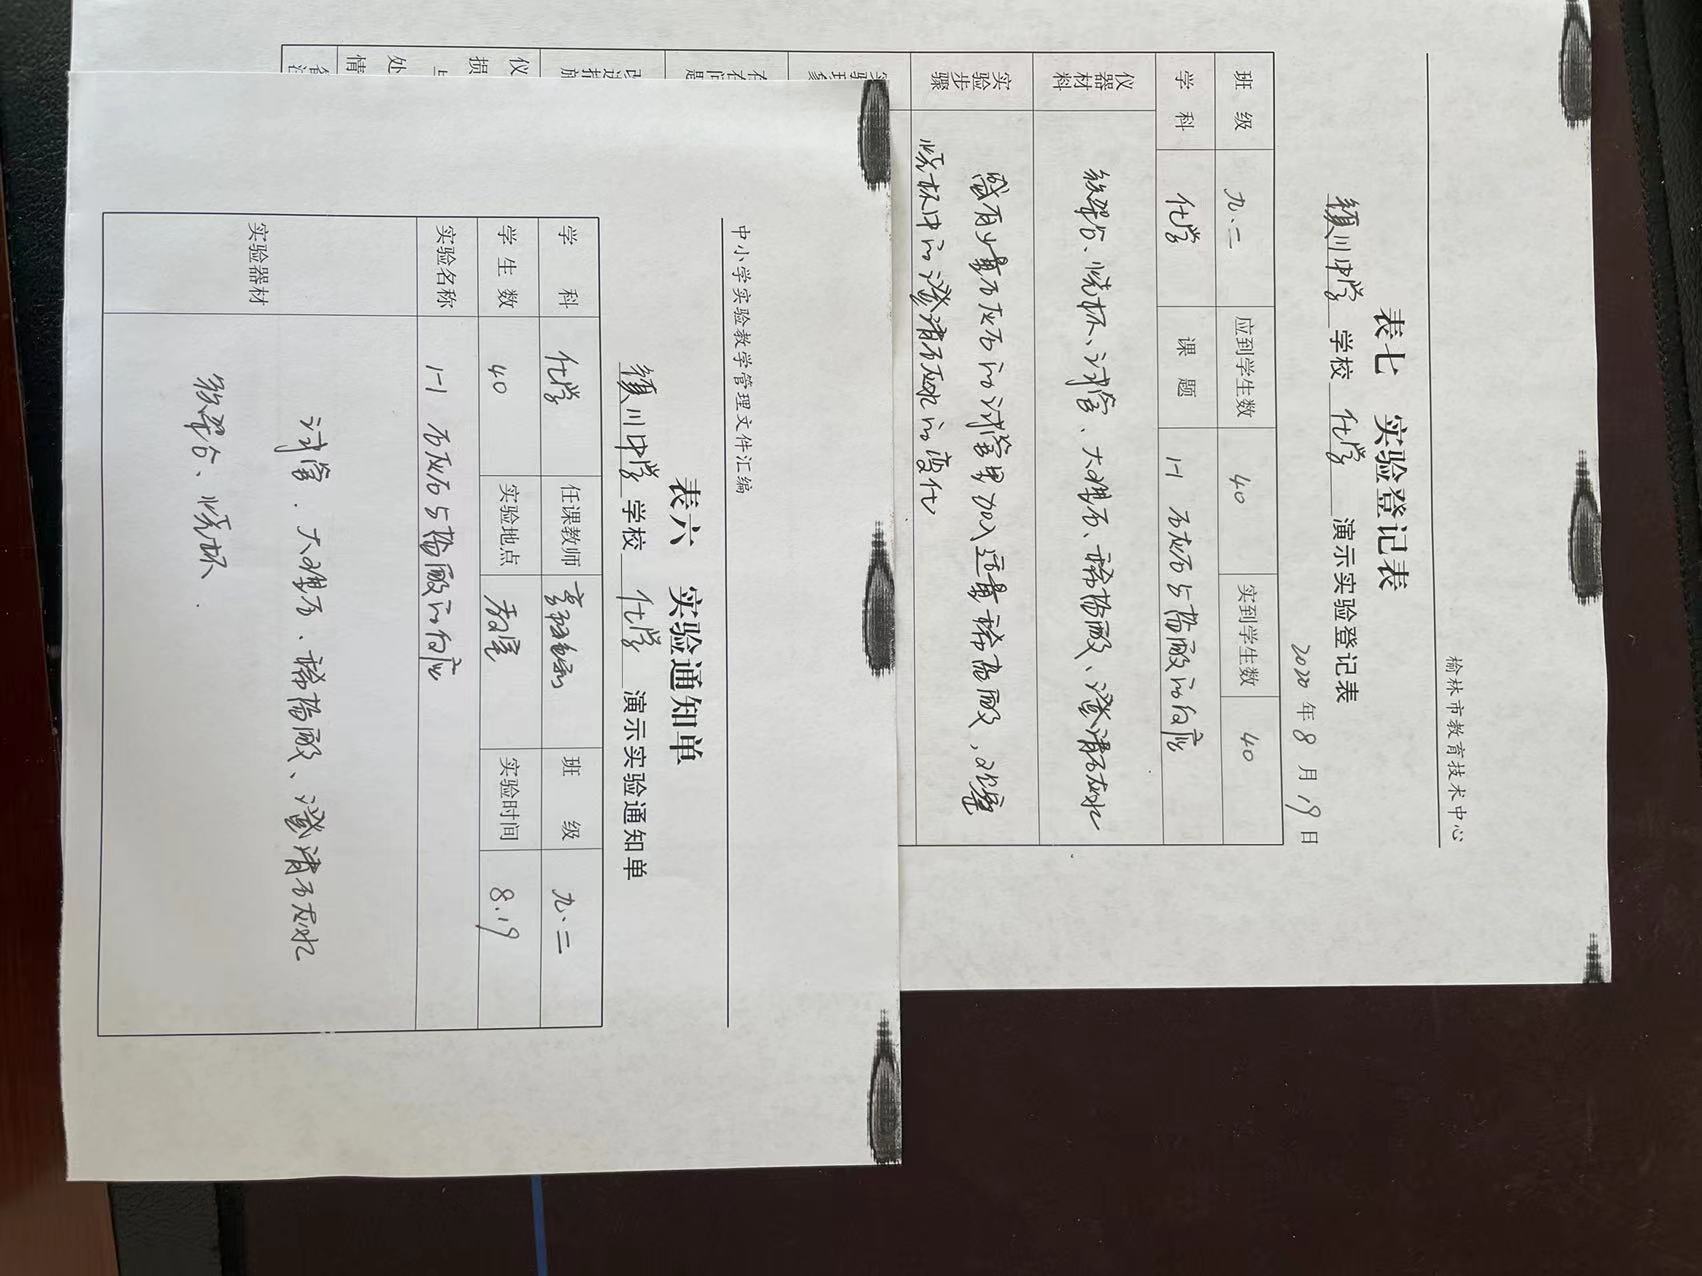 榆林市教育技术中心
表七 实验登记表
镇川中学 学校 化学 演示实验登记表
2020年8月19日
班 级 九.二 应到学生数 40 实到学生数 40
学 科 化学 课 题 1-1 石灰石与盐酸的反应
仪器材料 铁架台、烧杯、试管、大理石、稀盐酸、澄清石灰水
实验步骤 盛有少量石灰石的试管里加入适量稀盐酸,观察
烧杯中的澄清石灰水的变化
中小学实验教学管理文件汇编
表六 实验通知单
镇川中学 学校 化学 演示实验通知单
学 科 化学 任课教师 班 级 九.二
学生数 40 实验地点 教室 实验时间 8.19
实验名称 1-1 石灰石与盐酸的反应
实验器材 试管、大理石、稀盐酸、澄清石灰水
铁架台、烧杯.